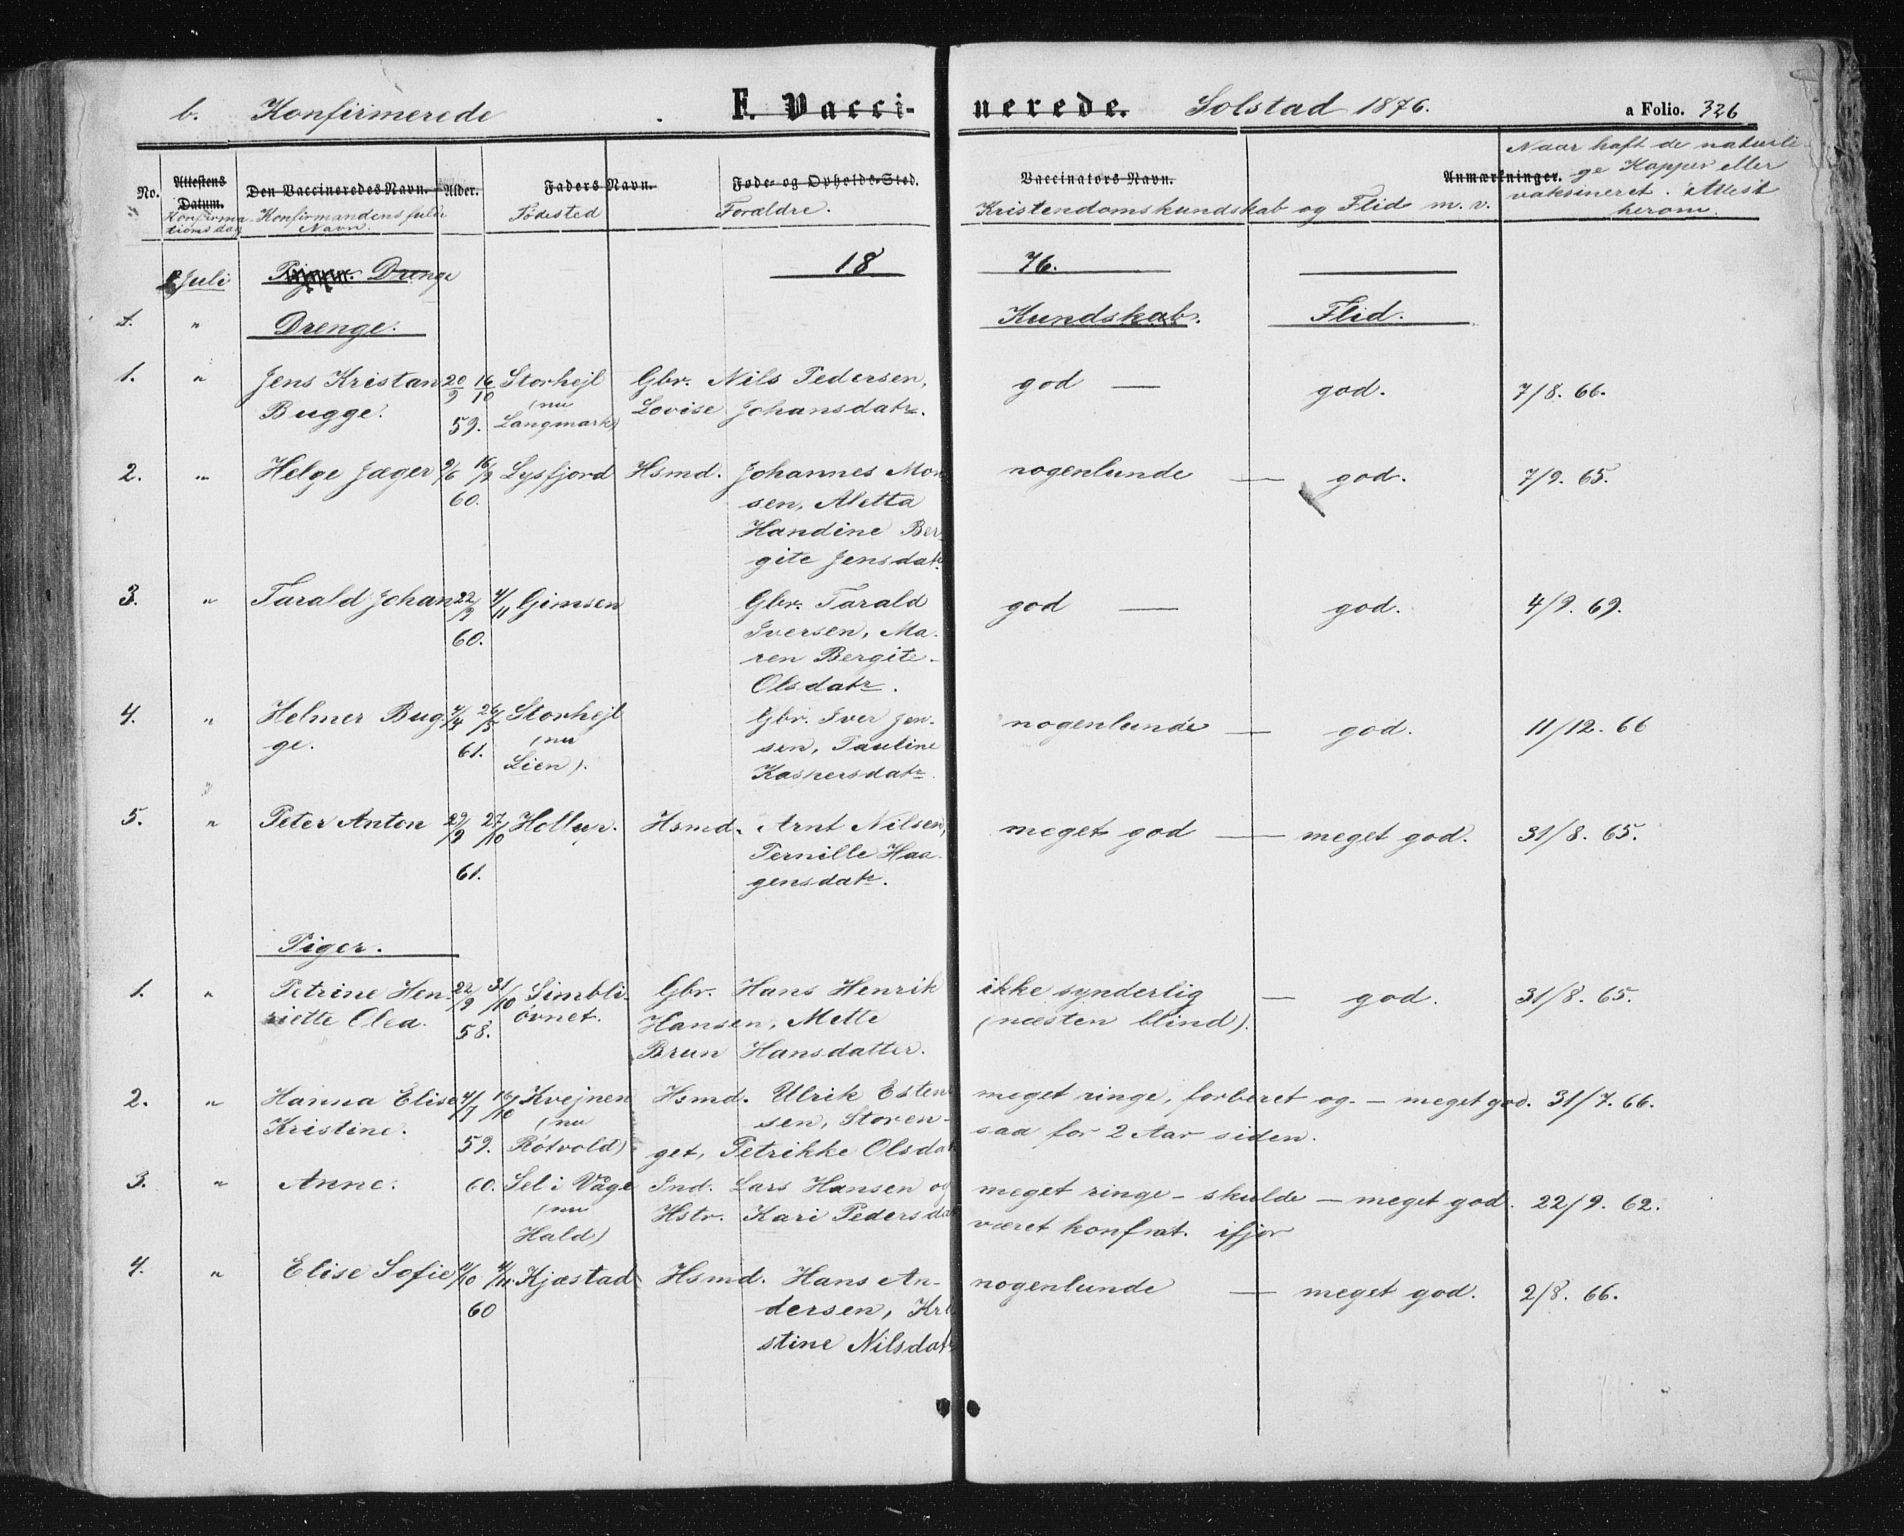 b. Konfirmerede F. Vacci- nerede. Solstad 1876. a Folio. 326
No. Attestens Datum. Den Vaccineredes Navn. Alder. Faders Navn. Føde- og Opholds-Sted. Vaccinators Navn. Anmærkninger.
Konfirmationsdag Konfirmandens fulde Navn. Fødested Forældre. Kristendomskundskab og Flid m. v. Naar haft de naturlige Kopper eller vaksineret. Attest herom.
Juli Drenge 18 76.
" Drenge. Kundskab. Flid.
1. " Jens Kristan 20/9 16/10 Storhejl Gbr. Nils Pedersen, god — god. 7/8. 66.
Bugge. 59. (nu Langmark) Lovise Johansdatr.
2. " Helge Jæger 9/6 16/9 Lysfjord Hsmd. Johannes Mon nogenlunde — god. 7/9. 65.
60. sen, Aletta
Handine Ber
gite Jensdatr
3. " Tarald Johan 22/9 4/11 Gimsen Gbr. Tarald god — god. 4/9. 69.
60. Iversen, Ma-
ren Bergite
Olsdatr.
4. " Helmer Bug 4/4 26/5 Storhejl Gbr. Iver Jen- nogenlunde — god. 11/12. 66
ge. 61. (nu sen, Pauline
Lien). Kaspersdatr.
5. " Peter Anton 29/9 27/10 Hollup. Hsmd. Arnt Nilsen, meget god — meget god. 31/8. 65.
61. Pernille Haa-
gensdatr.
Piger.
1. " Petrine Hen- 22/9 31/10 Simbli- Gbr. Hans Henrik ikke synderlig — god. 31/8. 65.
riette Olea. 58. övnet. Hansen, Mette (næsten blind).
Brun Hansdatter.
2. " Hanna Elise 4/7 16/10 Kvejnen Hsmd. Ulrik Esten meget ringe, forberet og — meget god. 31/7. 66.
Kristine. 59. (nu Rötvold) sen, Storen- saa for 2 Aar siden.
get, Petrikke Olsdat
3. " Anne. 60. Sel i Våge Ind. Lars Hansen og meget ringe — skulde — meget god. 22/9. 62.
(nu Hald) Hstr. Kari Pedersdat været konfrat. ifjor
4. " Elise Sofie 4/11 Kjæstad Hsmd. Hans An- nogenlunde — meget god. 2/8. 66.
60 dersen, Kri
stine Nilsdatr